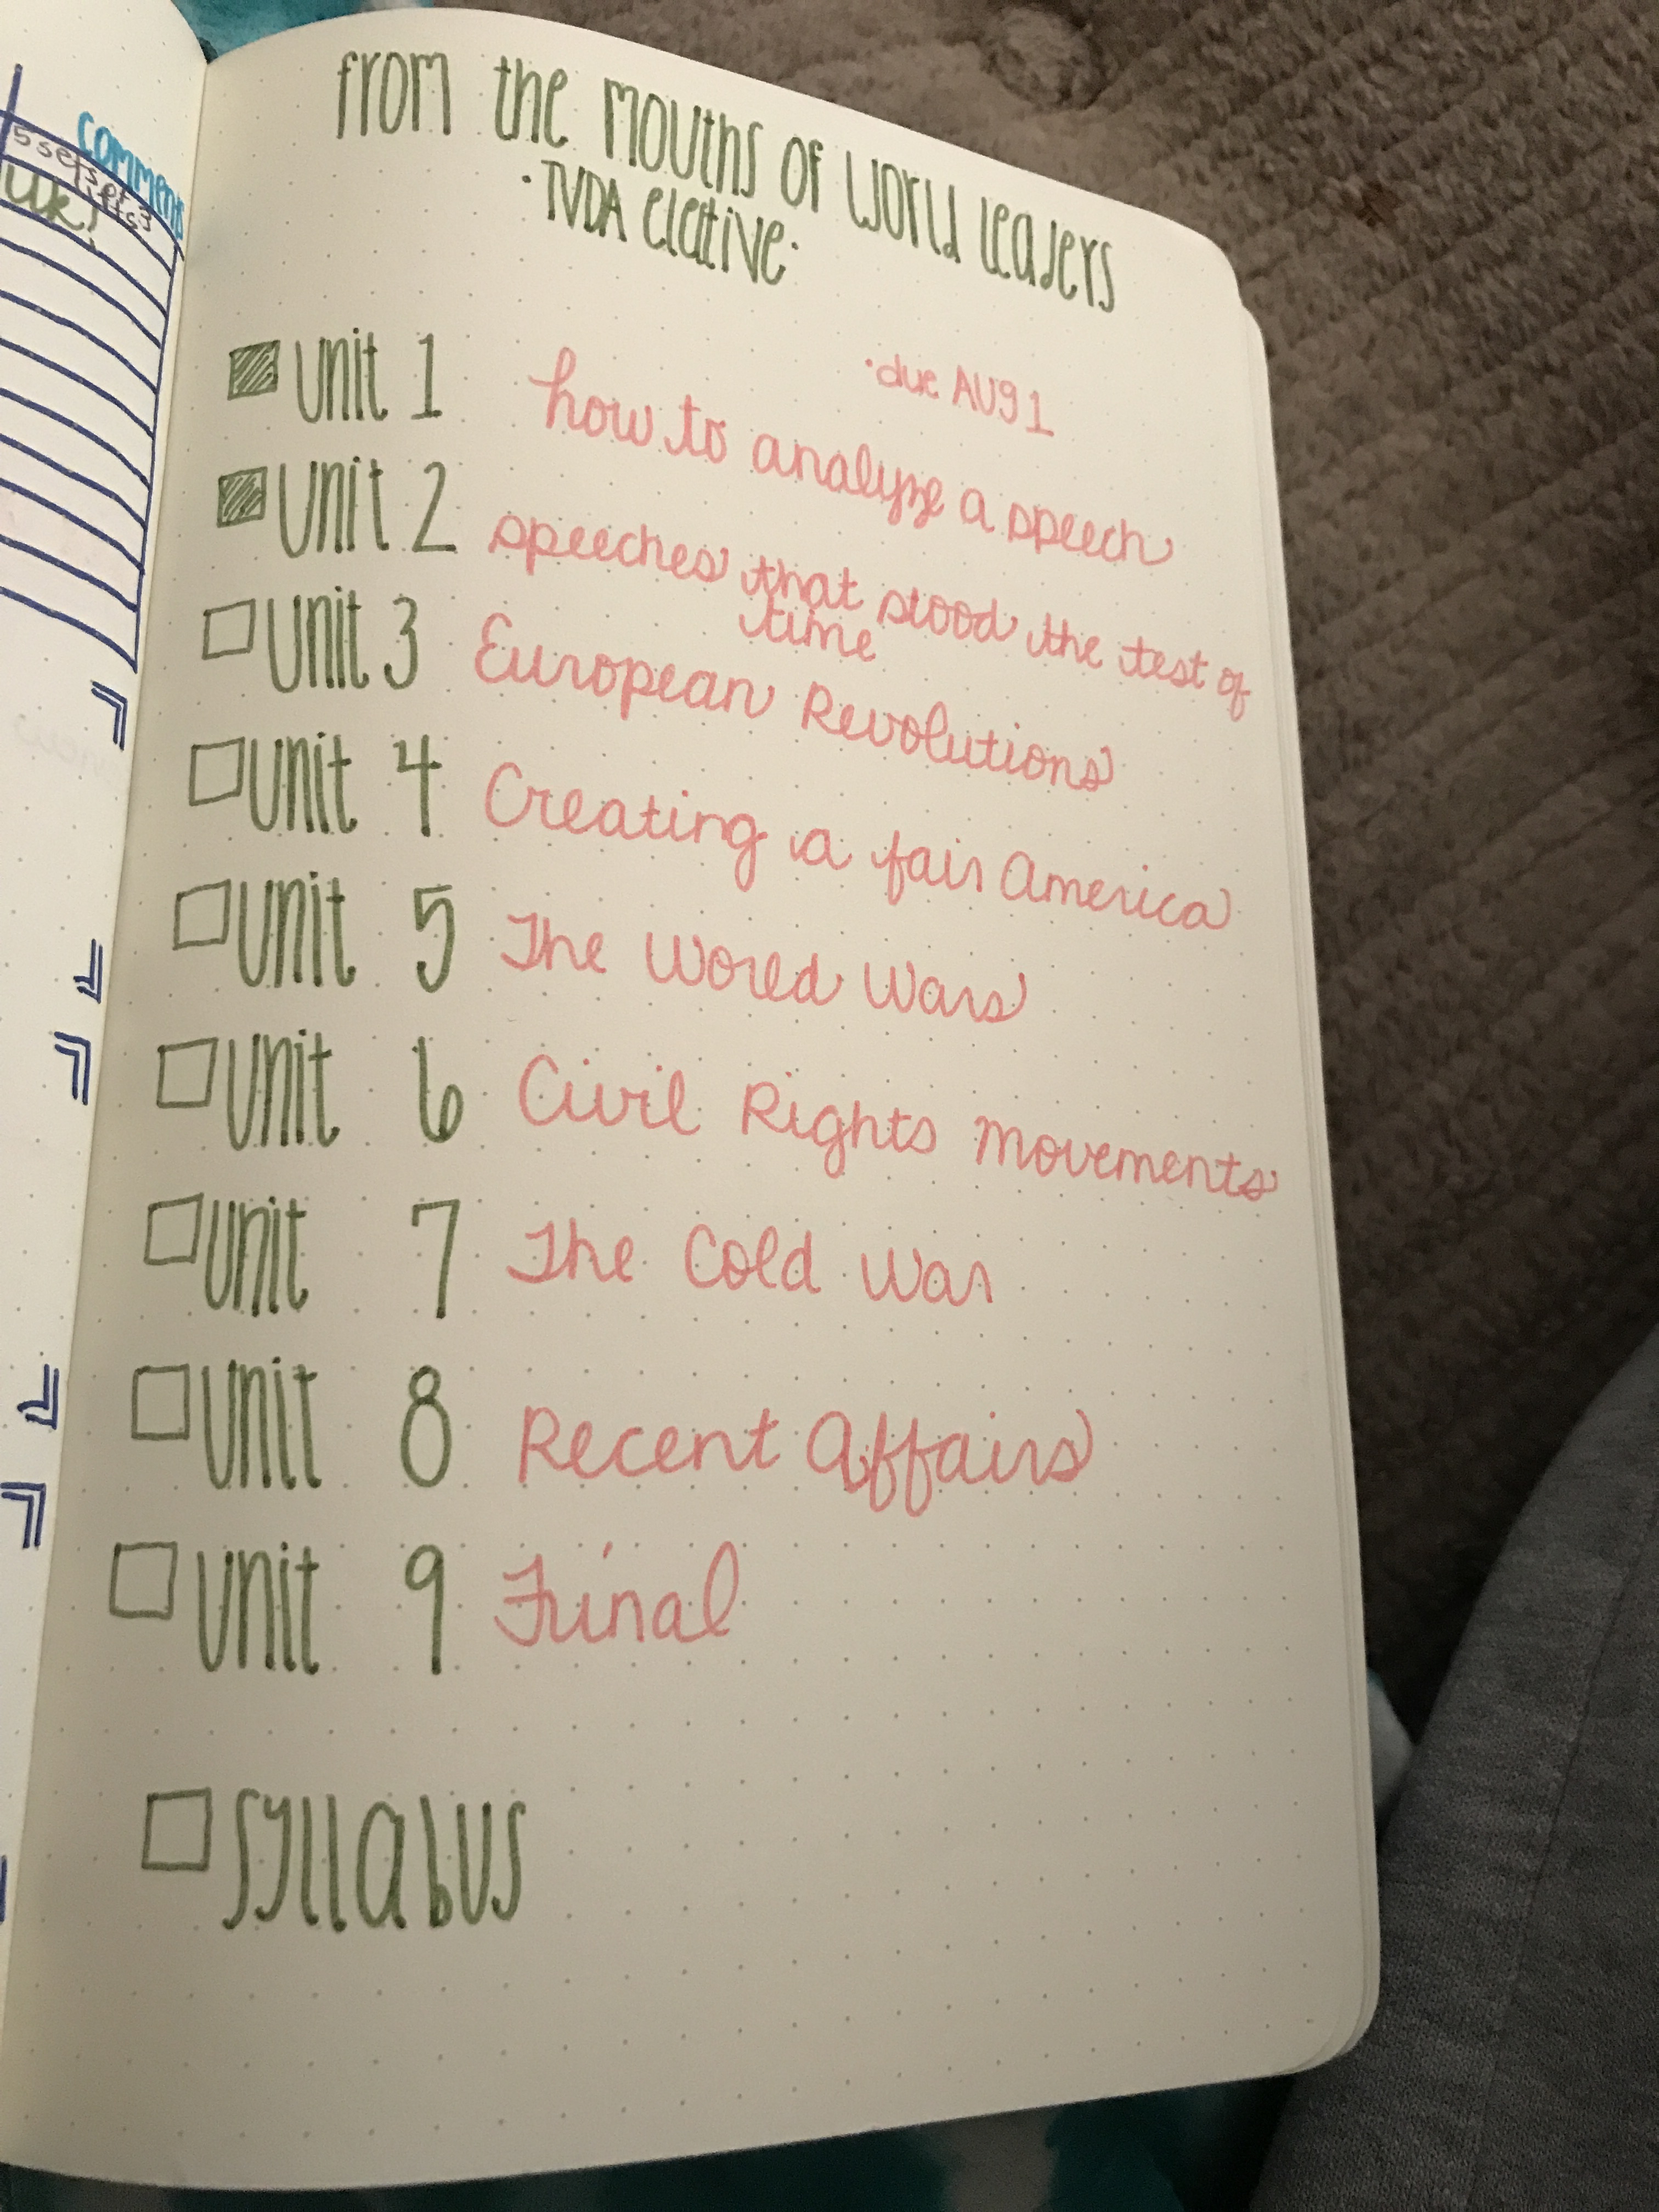 comments
5 sets of 3
lifts
UK!
from the mouths of world leaders
·TVDA elective·
·due AUG 1
unit 1 how to analyze a speech
unit 2 speeches that stood the test of
time
unit 3 European Revolutions
unit 4 Creating a fair America
unit 5 The World Wars
unit 6 Civil Rights Movements
unit 7 The Cold War
unit 8 Recent Affairs
unit 9 Final
syllabus